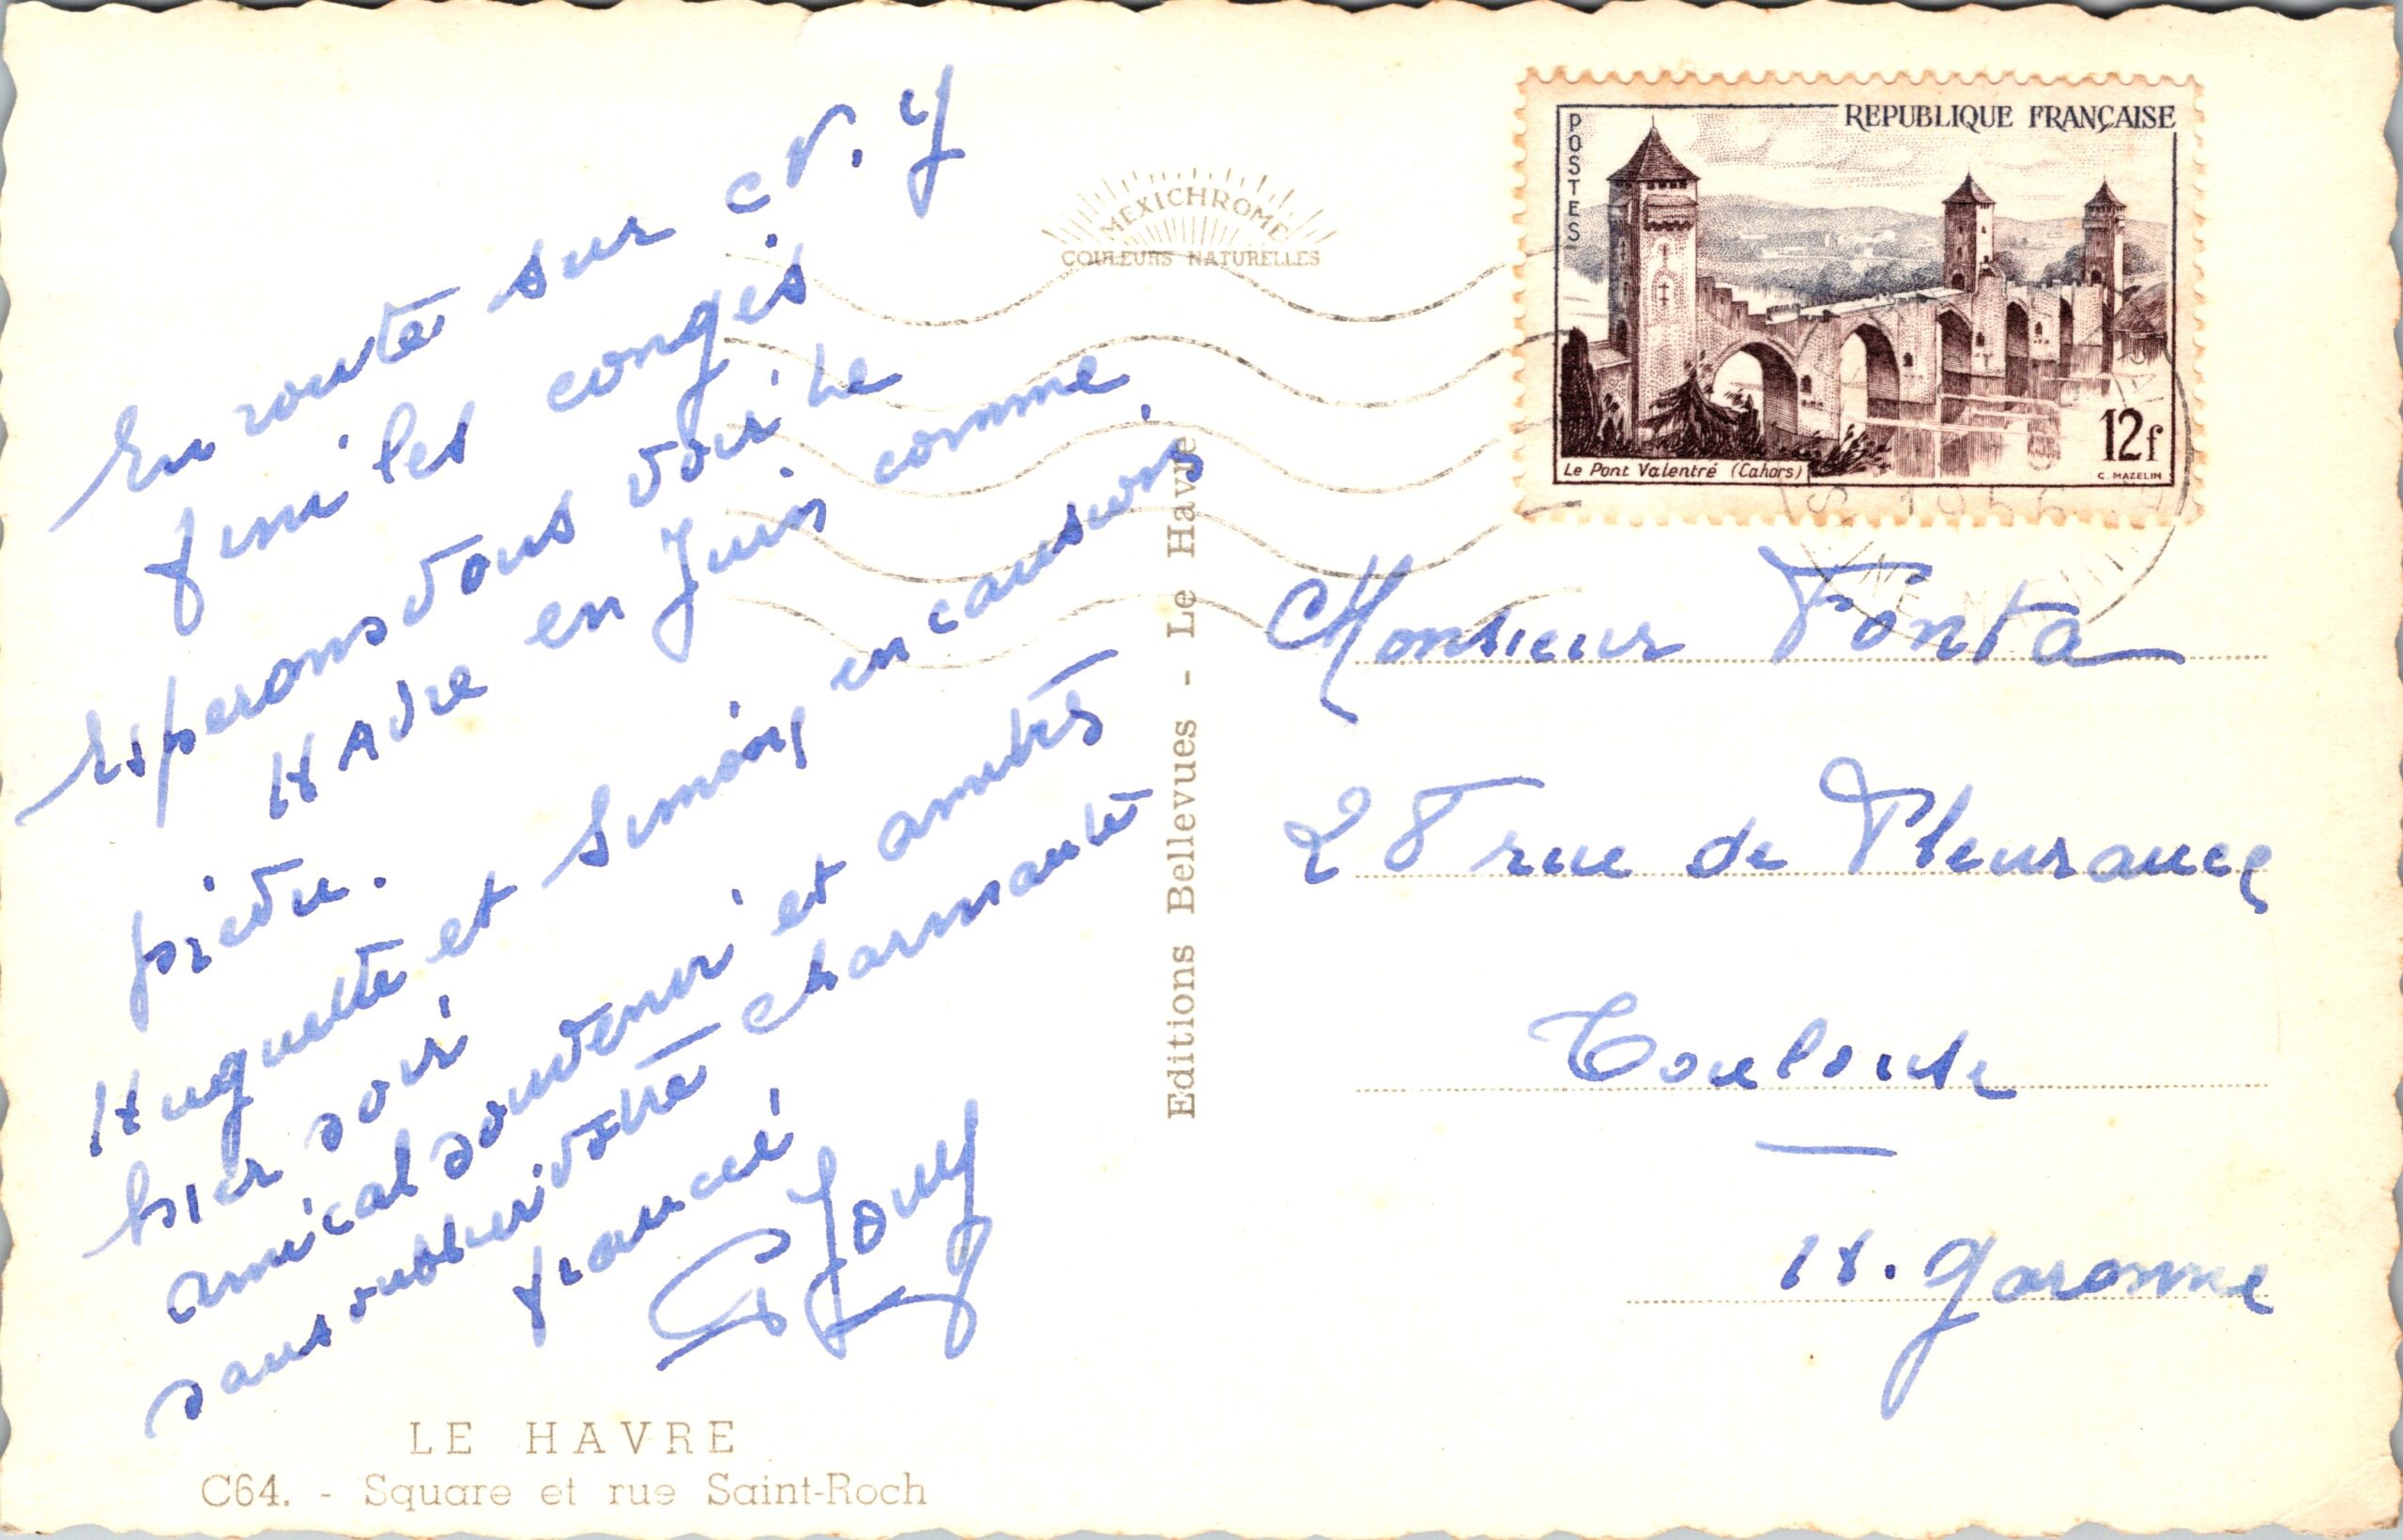 En route sur c N. Y
fini les congés
Esperons vous voir Le
HAvre en Juin comme
prévu.
Huguette et Simon, en causions
hier soir
amical souvenir et amitiés
sans oublier votre charmante
fiancée
G Jouy
LE HAVRE
C64. - Square et rue Saint-Roch
MEXICHROME
COULEURS NATURELLES
Editions Bellevues - Le Havre
POSTES
REPUBLIQUE FRANÇAISE
12f
Le Pont Valentré (Cahors)
C. MAZELIN
Monsieur Fonta
28 rue de Fleurance
Toulouse
H. Garonne